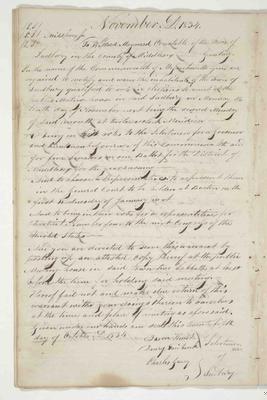 November D. 1834.
To Micah Maynard Constable of the Town of
Sudbury in the County of Middlesex Greeting.
In the name of the Commonwealth of Massachusetts you are
required to notify and warn the inhabitants of the Town of
Sudbury qualified to vote in Elections to meet at the
public Meeting house in said Sudbury on Monday the
tenth day of November next being the second Monday
of said month at twelve o'clock Meridian
To bring in their votes to the Selectmen for a Governor
and Lieutenant Governor of this Commonwealth and
for five Senators on one Ballot for the District of
Middlesex for the year ensuing
And to choose Representatives to represent them
in the General Court to be holden at Boston on the
first Wednesday of January next
And to bring in their votes for a representative for
District in the next Congress of the
United States
And you are directed to serve this warrant by
posting up an attested copy thereof at the public
Meeting house in said Town two sabbaths at least
before the time for holding said meeting
Hereof fail not and make due return of this
warrant with your doings thereon to ourselves
at the time and place of meeting as aforesaid.
Given under our hands and seals this twenty fifth
day of October A.D. 1834.
Selectmen
of
Sudbury